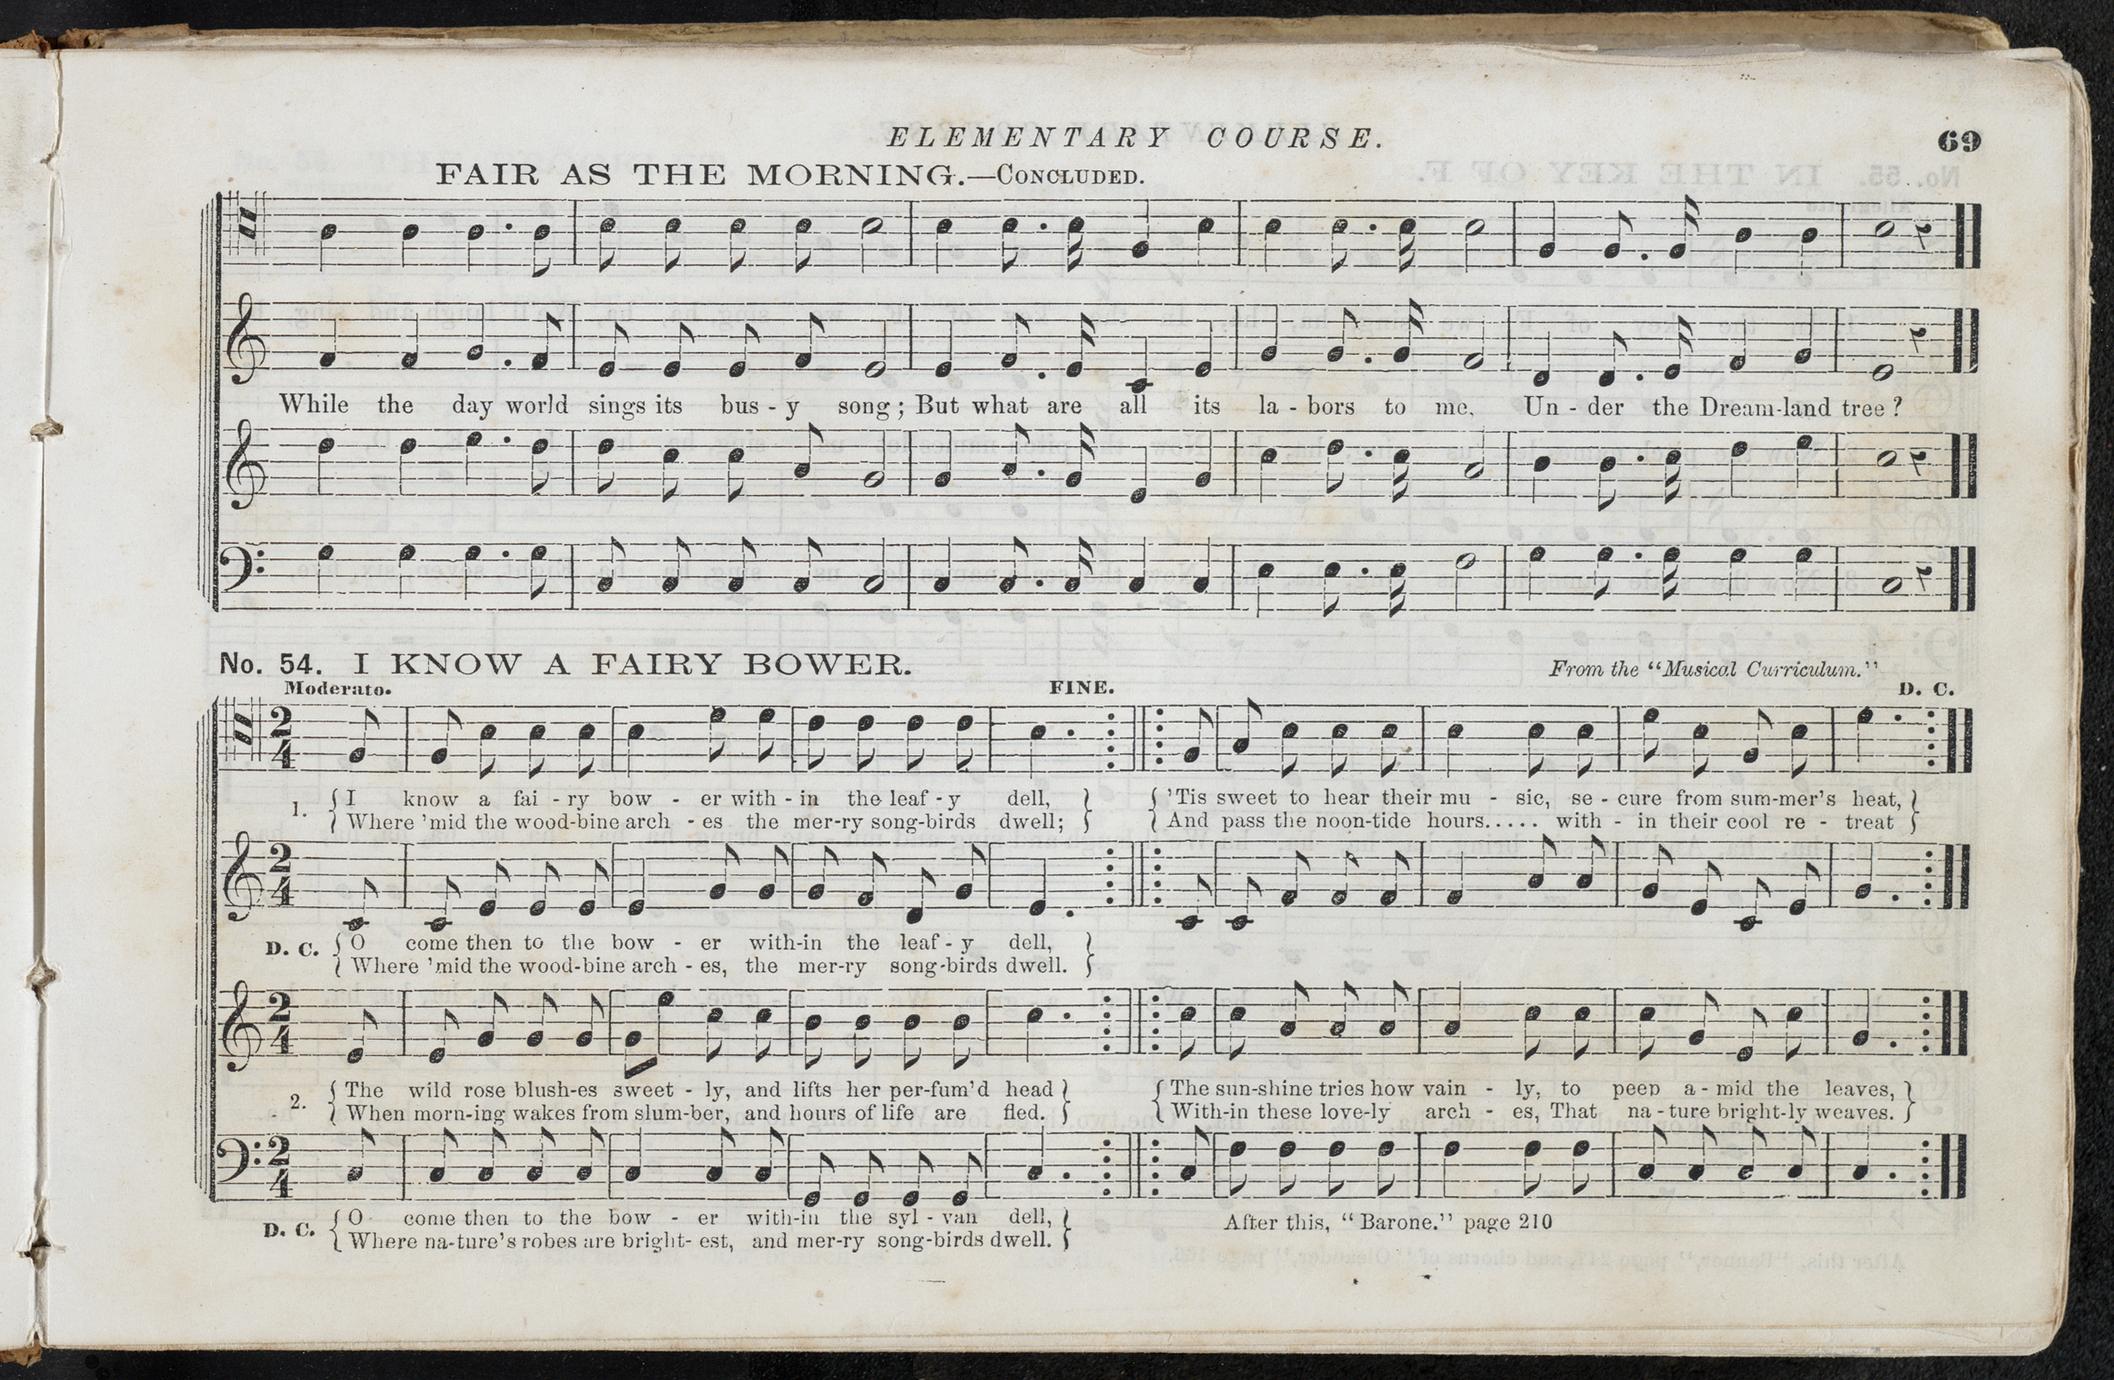 ELEMENTARY COURSE.
69
FAIR AS THE MORNING.—CONCLUDED.
While the day world sings its bus - y song; But what are all its la - bors to me, Un - der the Dream-land tree?
No. 54. I KNOW A FAIRY BOWER.
From the "Musical Curriculum."
Moderato.
FINE.
D. C.
2/4
1. I know a fai - ry bow - er with - in the leaf - y dell, 'Tis sweet to hear their mu - sic, se - cure from sum-mer's heat,
Where 'mid the wood-bine arch - es the mer-ry song-birds dwell; And pass the noon-tide hours..... with - in their cool re - treat
2/4
D. C. O come then to the bow - er with-in the leaf - y dell,
Where 'mid the wood-bine arch - es, the mer-ry song-birds dwell.
2/4
2. The wild rose blush-es sweet - ly, and lifts her per-fum'd head The sun-shine tries how vain - ly, to peep a - mid the leaves,
When morn-ing wakes from slum-ber, and hours of life are fled. With-in these love-ly arch - es, That na - ture bright-ly weaves.
2/4
D. C. O come then to the bow - er with-in the syl - van dell,
Where na-ture's robes are bright- est, and mer-ry song-birds dwell.
After this, "Barone." page 210